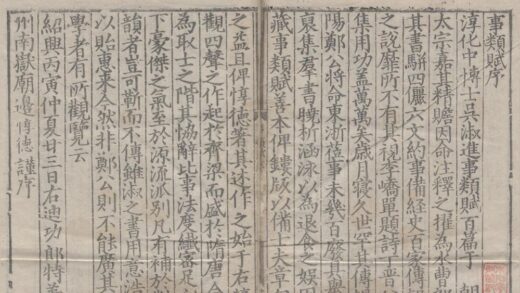 事類賦序
淳化中博士吳淑進事類賦百篇于 朝
太宗嘉其精贍因命注釋之擢為水曹郎
其書駢四儷六文約事備經史百家傳
之說靡所不有其視李嶠單題詩丁晉
集用功益萬萬矣歲月寖久世罕其傳
陽鄭公將命東浙蒞事未幾百廢具興
裒集羣書晞析涵泳以為退食之娛因
藏事類賦善本俾鏤版以備士大夫章
之益且俾惇德著其述作之始于右
觀四聲之作起於齊梁而盛於隋唐
為取士之階其協辭比事法度纖密足
下豪傑之氣至於源流派別凡有補於
韻者豈可勒而不傳雖淑之書用意
以貽惠東人然非鄭公則不能廣其
學者有所觀覽云
紹興丙寅仲夏廿三日右迪功郎特差
州南嶽廟邊惇德謹序